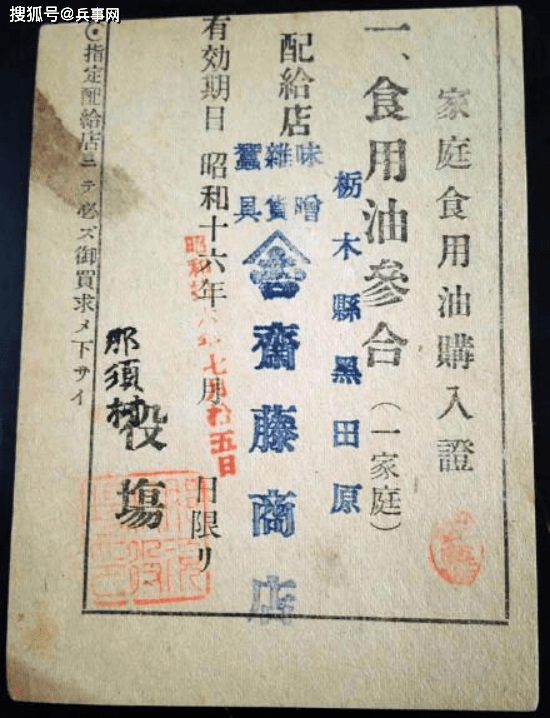 搜狐号@兵事网
家庭食用油購入證
一、食用油參合（一家庭）
栃木縣黑田原
配給店
味噌
雜貨
蠶具
齋藤商店
有効期日 昭和十六年 月 日限リ
七月拾五日
那須村役塲
指定配給店ニテ必ズ御買求メ下サイ